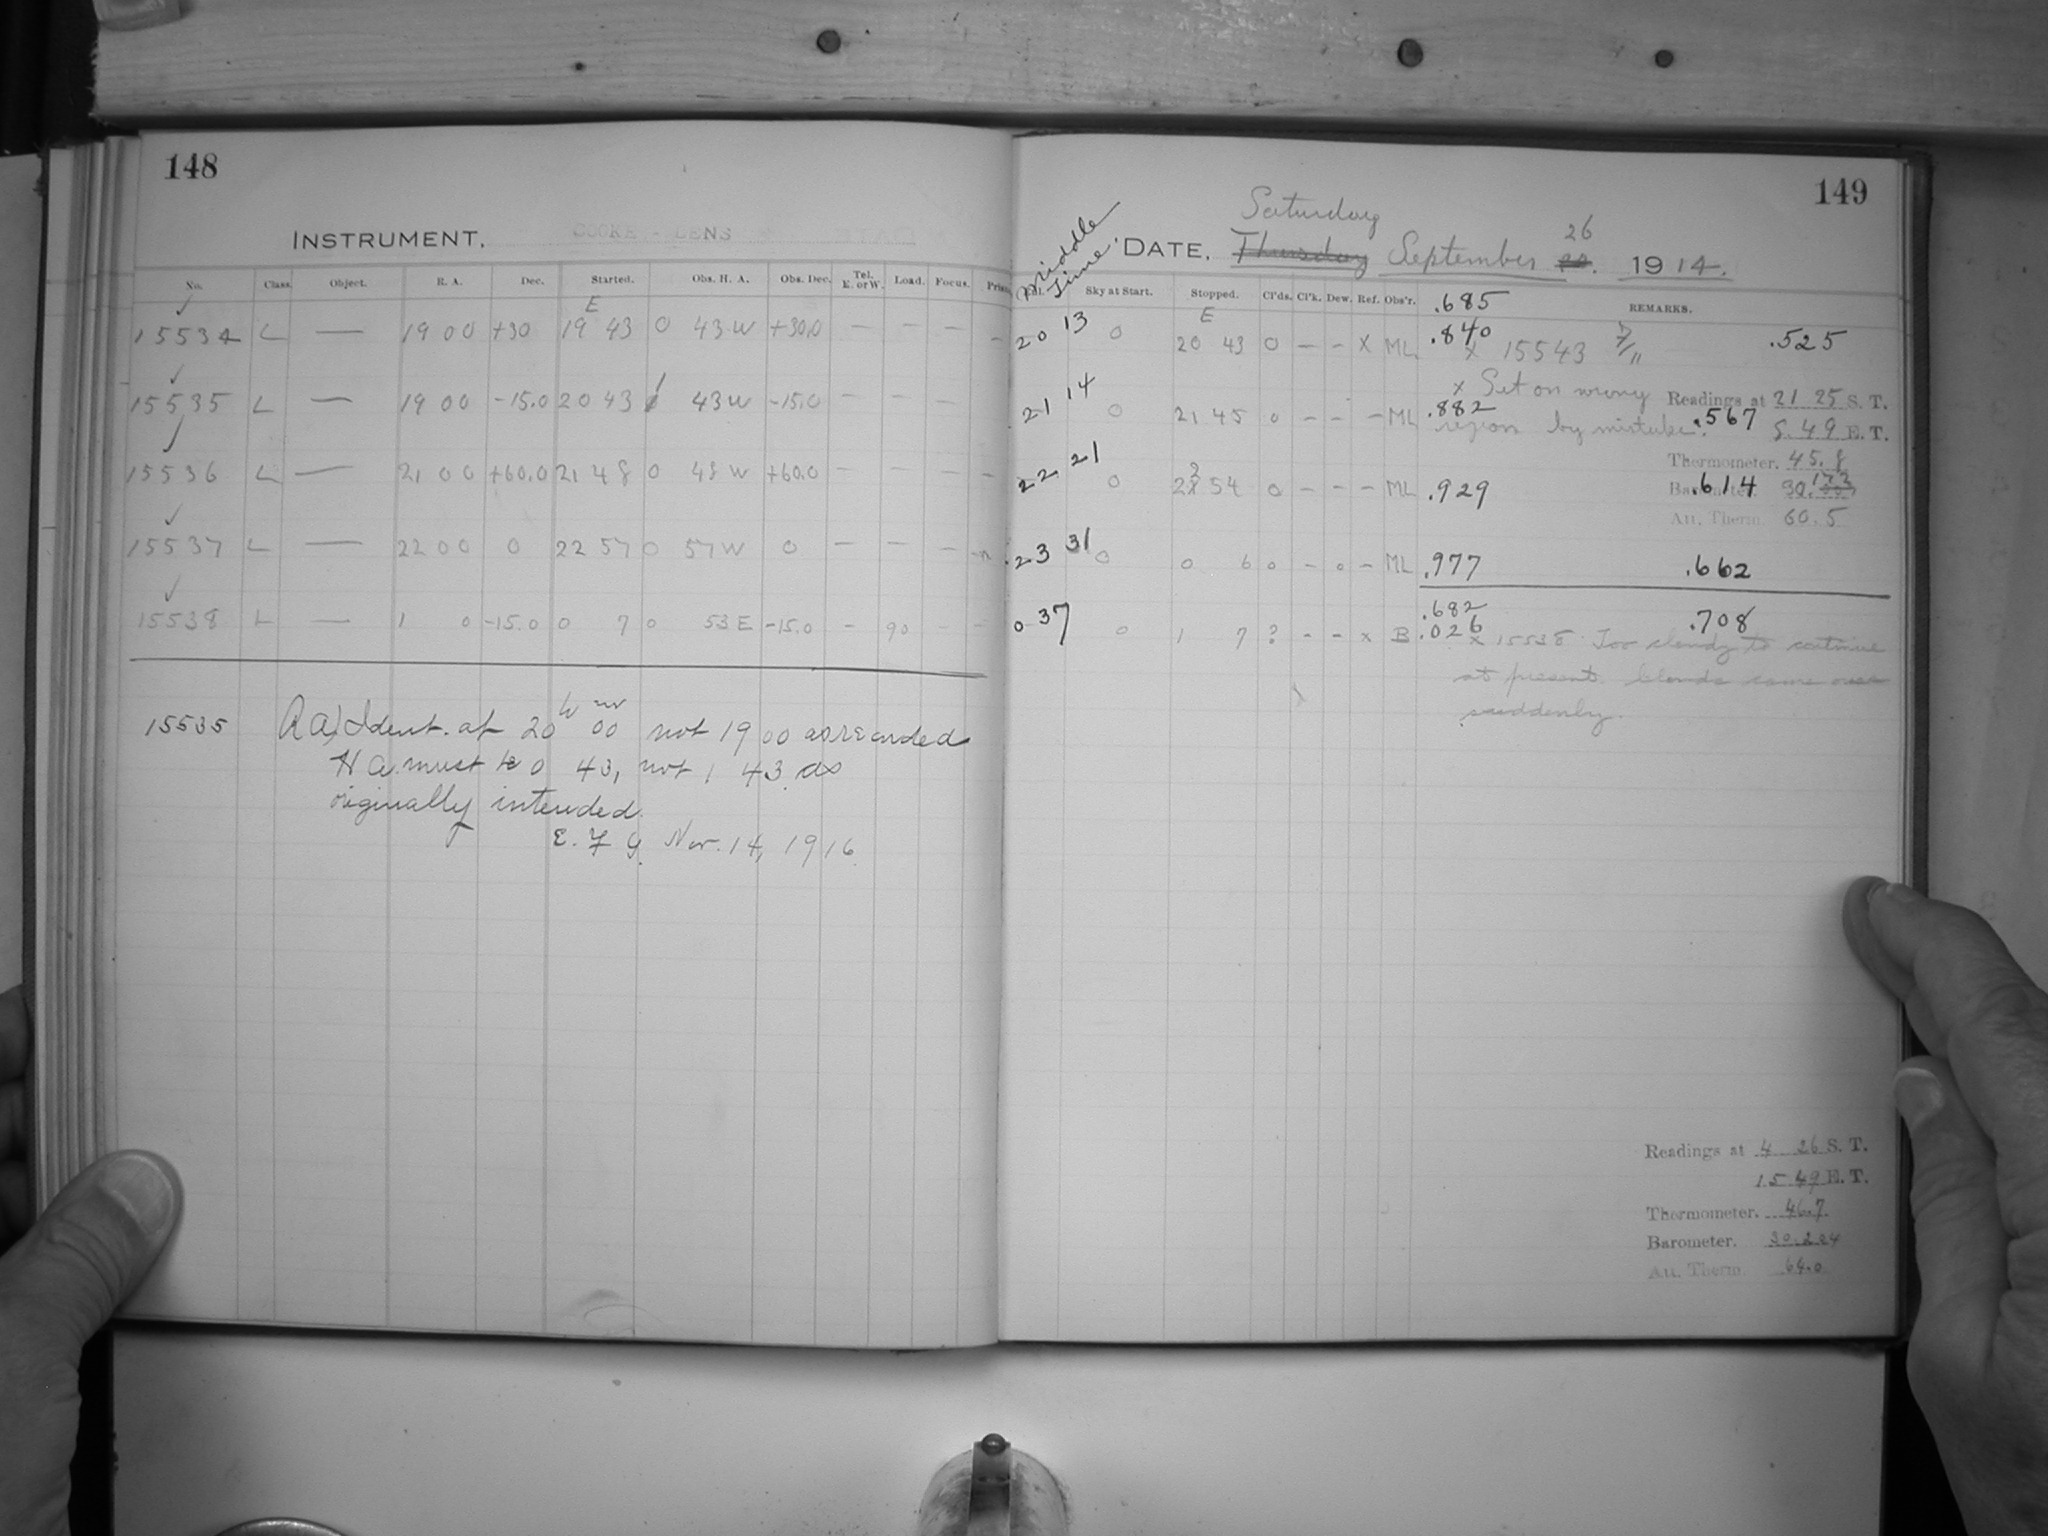 148
INSTRUMENT. COOKE - LENS
No. Class. Object. R. A. Dec. Started. Obs. H. A. Obs. Dec. Tel. E. or W. Load. Focus.
E
15534 L — 19 00 +30 19 43 0 43 W +30.0 — — —
15535 L — 19 00 -15.0 20 43 43 W -15.0 — — —
15536 L — 21 00 +60.0 21 48 0 48 W +60.0 — — —
15537 L — 22 00 0 22 57 0 57 W 0 — — —
15538 L — 1 0 -15.0 0 7 0 53 E -15.0 — 90 — —
15535 R a) Ident. at 20 h 00 m not 19 00 as recorded
H a. must be 0 43, not 1 43 as
originally intended.
E. F. G. Nov. 14, 1916.
149
Saturday
Middle Time DATE. Thursday September 26 1914.
Sky at Start. Stopped. Cl'ds. Cl'k. Dew. Ref. Obs'r. .685 REMARKS.
E
20 13 0 20 43 0 — — X ML .840 x 15543 .525
x Set on wrong Readings at 21 25 S. T.
21 14 0 21 45 0 — — — ML .882 region by mistake. .567 9.49 E. T.
Thermometer. 45.8
22 21 0 22 54 0 — — — ML .929 .614 Barometer. 30.173
Att. Therm. 60.5
23 31 0 0 6 0 — 0 — ML .977 .662
.682
0 37 0 1 7 ? — — x B .026 .708
x 15538 Too cloudy to continue
at present. Clouds came over
suddenly.
Readings at 4 26 S. T.
15 49 E. T.
Thermometer. 46.7
Barometer. 30.204
Att. Therm. 64.0